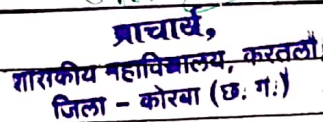 प्राचार्य,
शासकीय महाविद्यालय, करतला
जिला - कोरबा (छ. ग.)